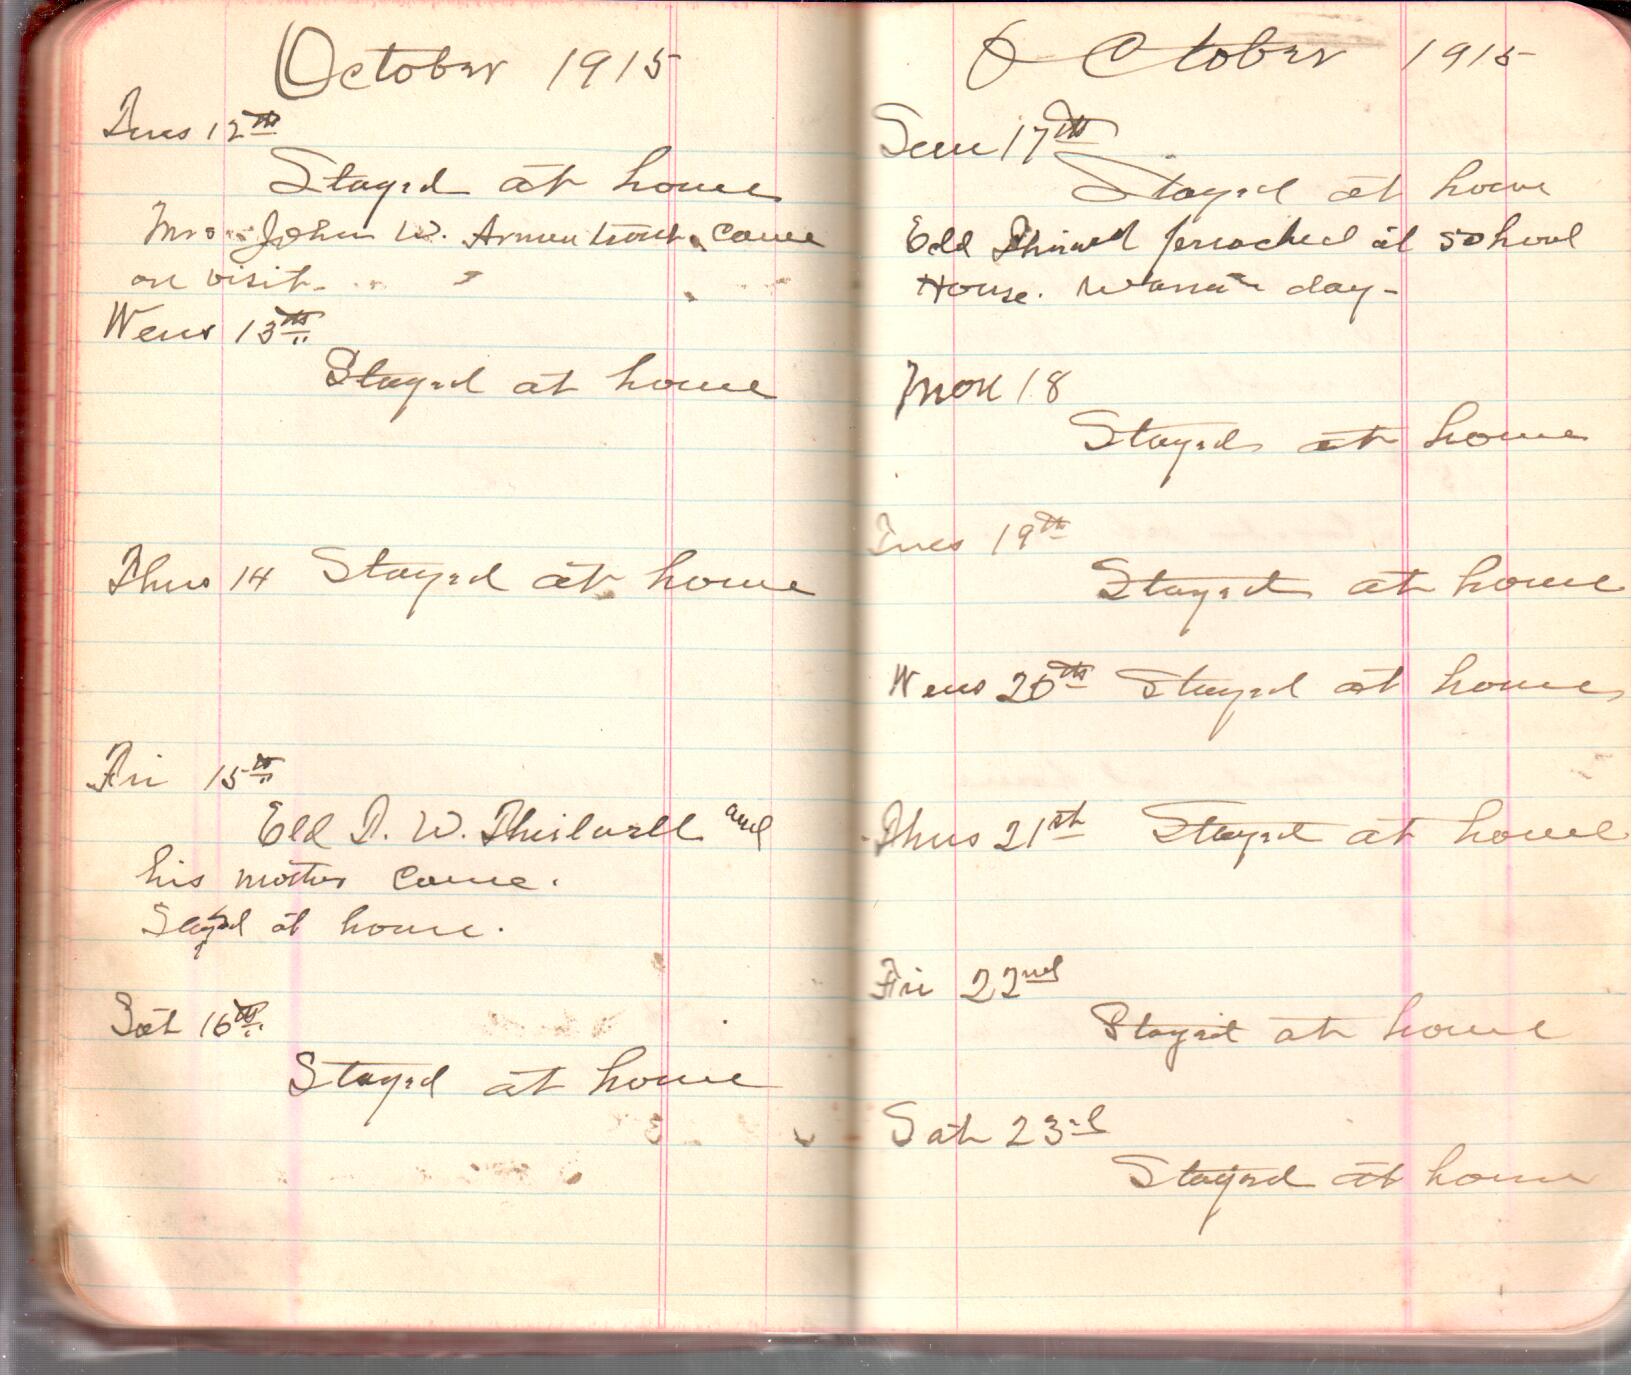 October 1915
Tues 12th
Stayed at home
Mrs. John W. Armentrout came
on visit.
Wens 13th
Stayed at home
Thus 14 Stayed at home
Fri 15th
Eld D. W. and
his mother came.
Stayed at home.
Sat 16th
Stayed at home
October 1915
Sun 17th
Stayed at home
Eld preached at school
House. Warm day-
Mon 18
Stayed at home
Tues 19th
Stayed at home
Wens 20th Stayed at home
Thus 21st Stayed at home
Fri 22nd
Stayed at home
Sat 23rd
Stayed at home